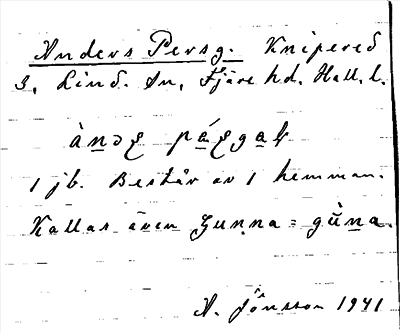 Anders Persg. Knipered
3, Lind. sn, Fjäre hd, Hall. l.
1 jb. Består av 1 hemman.
Kallas även Gunna =
A. Jönsson 1941